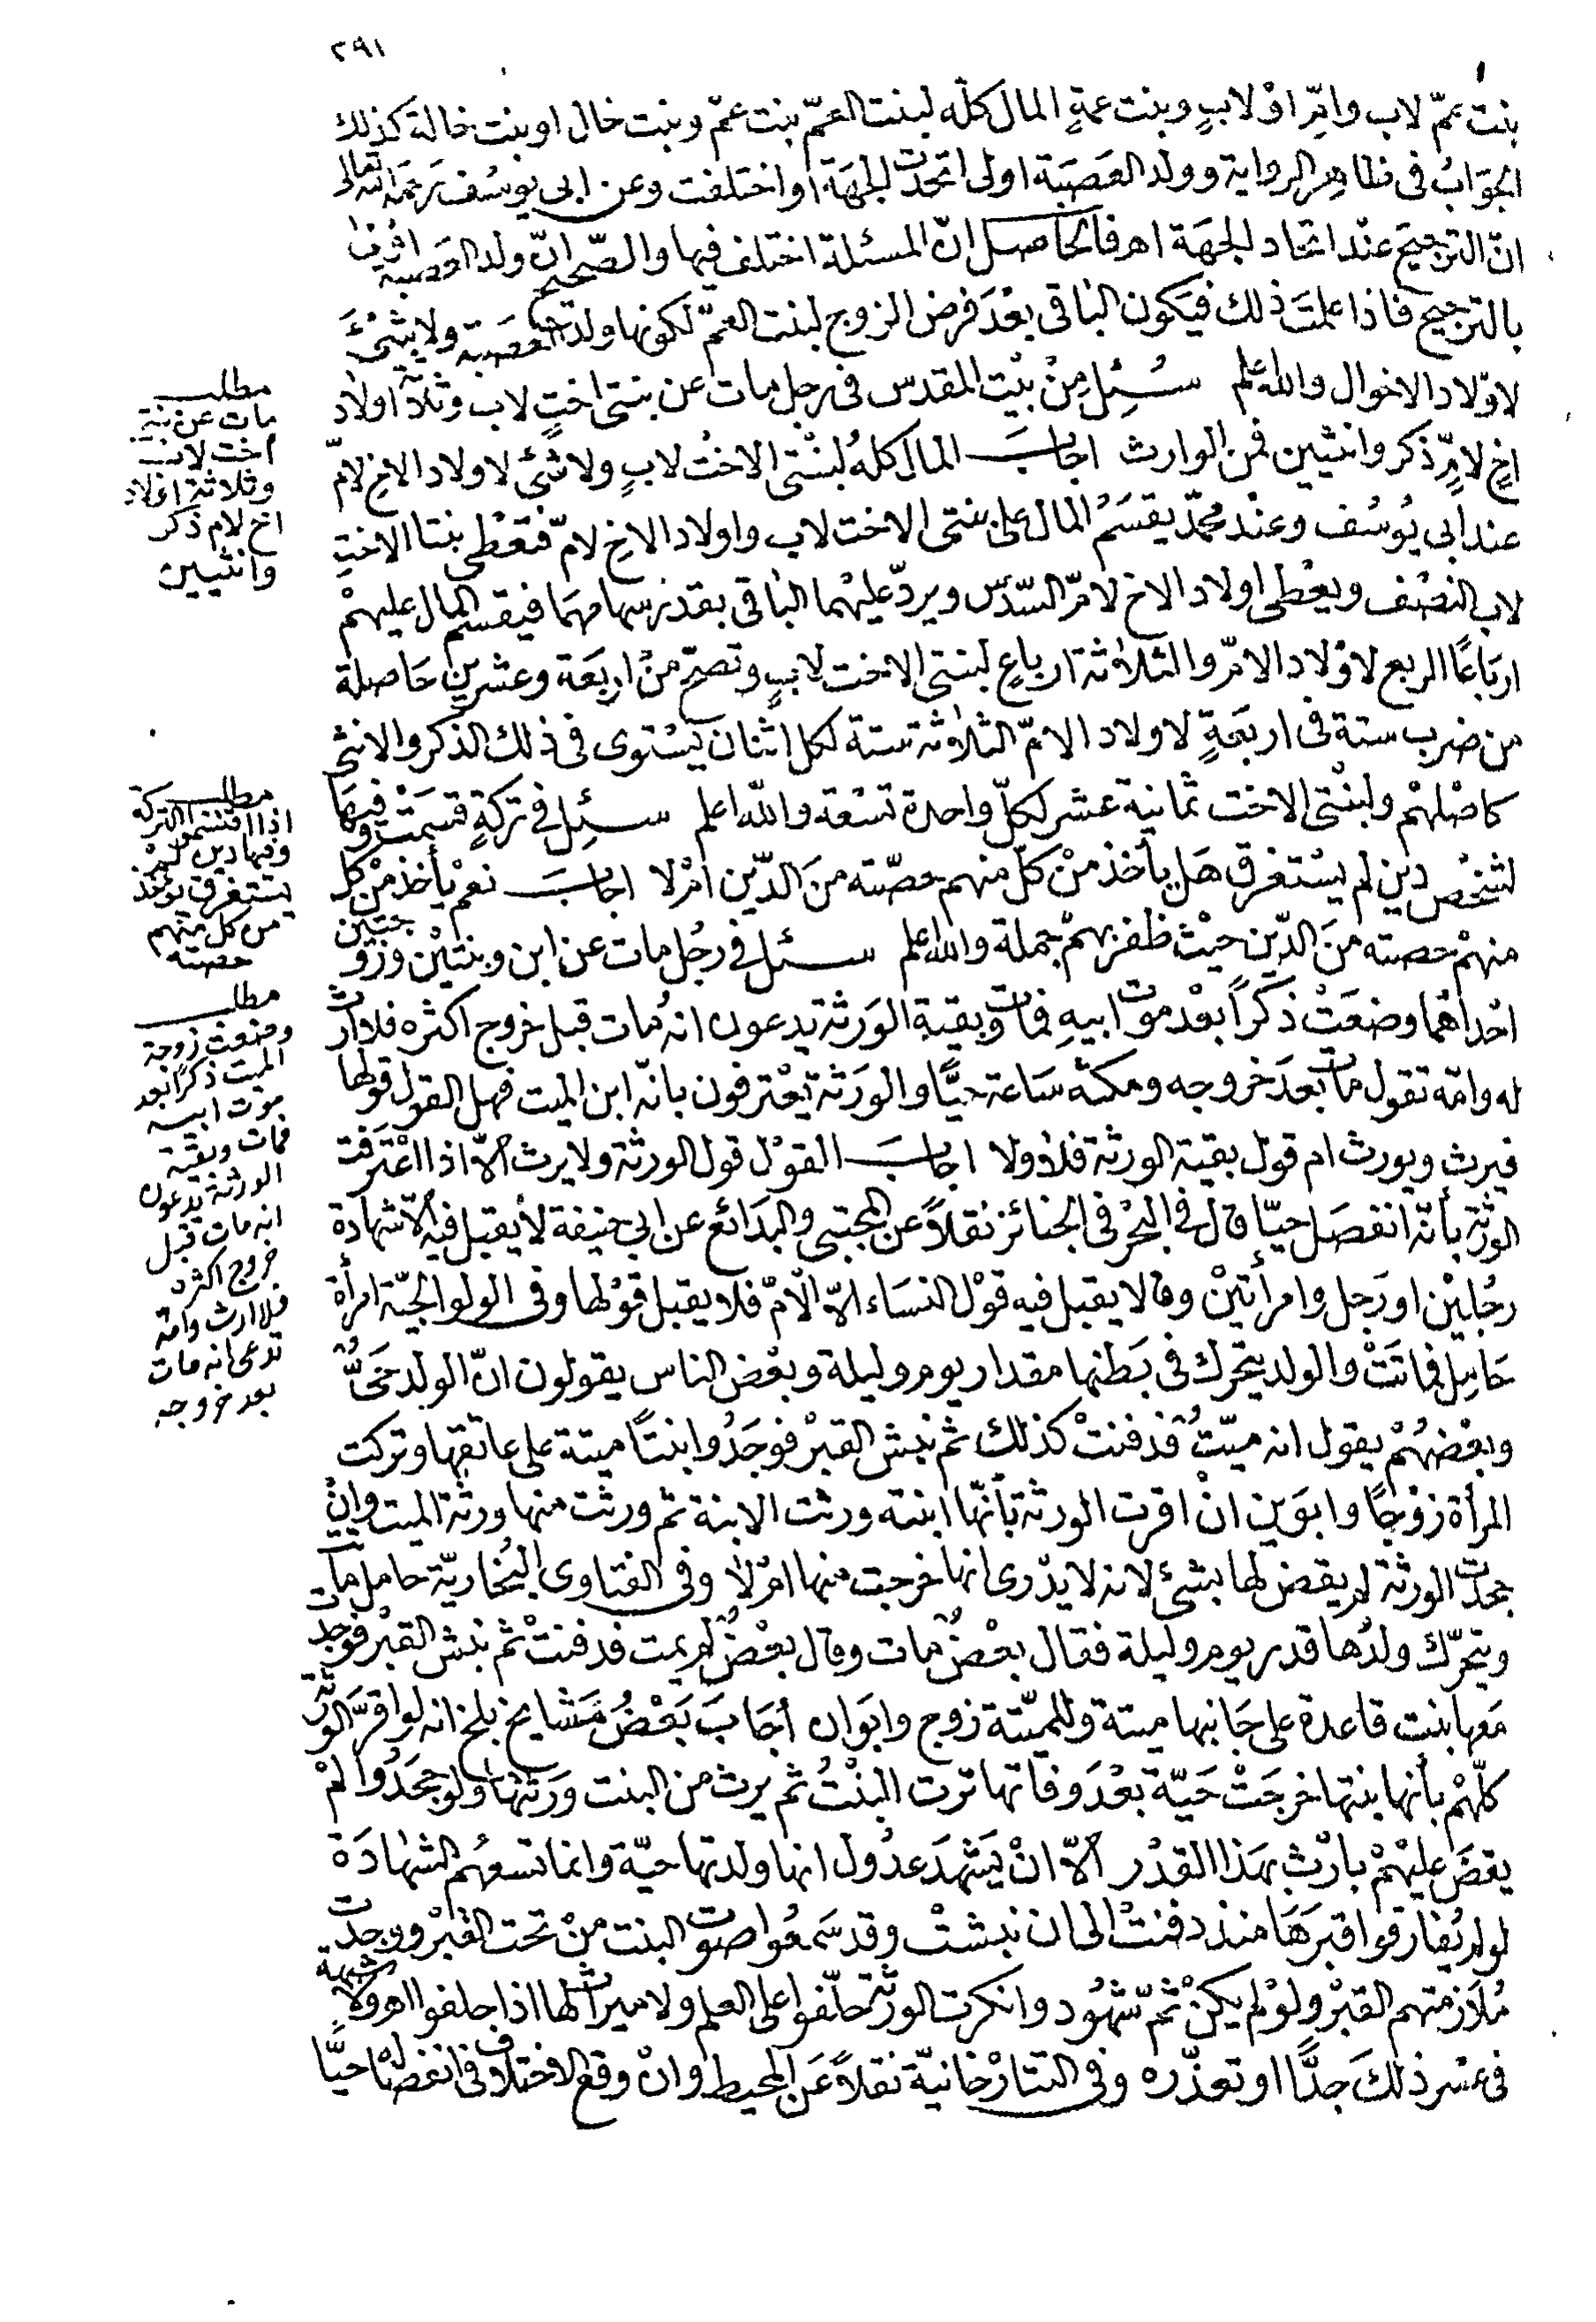 ٢٩١
بنت عمّ لاب وامّ او لابٍ وبنت عمةٍ المال كلّه لبنت العمّ بنت عمّ وبنت خال او بنت خالة كذلك
الجوَابُ فى ظاهِر الرواية وولد العَصَبَة اولى اتحدت الجهَة او اختلفت وعن ابى يوسُف رَحِمَهُ الله تعالى
انّ الترجيحَ عنْد اتحاد الجهَة اهـ فالحاصل انّ المسئلة اختلف فيها والصّحيح انّ ولد العَصبة
بالترجيح فاذا علمتَ ذلك فيَكون الباقى بعْدَ فرض الزوج لبنت العمّ لكونها ولد العَصَبَة ولا شْئَ
لاوْلاد الاخوال والله اعلم سُئِل مِنْ بيْت المقدس فى رجل مات عن بنتى اختٍ لاب وثلاثة اولاد
اخٍ لامٍّ ذكر وانثيين فمن الوارث اجابَ المال كلهُ لبنْتى الاختُ لابٍ ولا شْئ لاولاد الاخ لامّ
عند ابى يُوسُف وعنْد محمّد يقسَمُ المال على بنتى الاخت لاب واولاد الاخ لامّ فتعْطى بنتا الاختِ
لاب النصْف ويعْطى اولاد الاخ لامّ السّدس ويردّ عليْهما الباقى بقدر سهامهمَا فيقسم المال عليهمْ
ارباعًا الربع لاوْلاد الامّ والثلاثة ارباعٍ لبنتى الاخت لابٍ وتصحّ منْ اربَعَة وعشرين حَاصلة
من ضرب ستة فى اربعةٍ لاولاد الامّ الثلاثة ستة لكل اثنان يَسْتوى فى ذلك الذكر والانثى
كاصْلهمْ ولبنْتى الاخت ثمانية عشر لكلّ واحدة تسْعة والله اعلم سئِل فى تركةٍ قسمَتْ وفيهَا
لشخْص ديْن لم يسْتغرق هَل يأخذ منْ كلّ منهم حصّته منَ الدّين امْ لا اجابَ نعمْ يأخذ منْ كل
منهمْ حصته منَ الدّين حيْث ظفر بهمْ جملة والله اعلم سئل فى رجُل مات عن ابن وبنتيْن وزوجتين
احْداهما وضعَتْ ذكراً بعْد موت ابيهِ فمات وبقية الوَرثة يدعون انه مات قبل خروج اكثره فلا ارث
له وامّه تقول مات بعدَ خروجه ومكثه سَاعة حيًّا والورَثة يعْترفون بانّه ابن الميت فهل القول قولها
فيرث ويورث ام قول بقية الورثة فلا ولا اجابَ القوْل قول الورثة ولا يرث الاّ اذا اعْترَفت
الورثة بأنّه انفصَل حيّا قال فى البحْر فى الجنائز نقلاً عن المجتبى والبدَائع عن ابى حنيفة لا يقبل فيه الاّ شهادة
رجُليْن او رَجل وامرأتيْن وقالا يقبل فيه قوْل النسَاء الاّ الامّ فلا يقبل قوْلها وفى الولوالجيّة امرأة
حَامِل فماتَتْ والولد يتحرّك فى بَطنها مقدار يوم وليلة وبعْض الناس يقولون انّ الولد حَىٌّ
وبعْضهُمْ يقول انه ميّتٌ فدفنتْ كذلك ثم نبش القبْر فوجَدُوا بنتًا ميتة على عاتقها وتركت
المرأة زوْجًا وابوَين انْ اقرت الورثة بأنّها ابنته ورثت الابنة ثم ورثت منها ورثة الميت وانْ
جحدت الورثة لم يقض لها بشئ لانه لا يدْرى انها خرجت منها امْ لا وفى الفتاوى البُخاريّة حامل ماتت
ويتحرّك ولدُها قدر يوم وليلة فقال بعْضٌ مات وقال بعْضٌ لم يمت فدفنتْ ثم نبش القبْر فوجد
مَعها بنت قاعدة على جَانبها ميتة وللميّتة زوج وابوَان أجَابَ بَعْضُ مَشايخ بلخ انه لو اقرَّ الورثة
كلّهمْ بأنها بنتها خرجَتْ حَيّة بعْدَ وفاتها ترت البنْتُ ثم يرث من البنت وَرَثتها ولو جحَدُوا لمْ
يقضَ عليْهمْ بارْثٍ بهَذا القدْر الاّ انْ يَشهَدَ عدُول انها ولدتها حيّة وانما تسعهُم الشهادَة
لو لم يُفارقوا قبرَهَا منذ دفنتْ الى ان نبشتْ وقد سَمعُوا صوت البنت منْ تحت القبْر ووجدت
مُلازمتهم القبْر ولوْ لم يكنْ ثمّ شهُود وانكرت الورثة حلّفوا على العلم ولا ميراث لها اذا حلفوا اهـ ولا شبهة
فى عسْر ذلكَ جدًّا او تعذّره وفى التتارْخانيّة نقلاً عَن المحيط وانْ وقع الاختلاف فى انفصَالها حيًّا
مطلب
مات عن بنتى
اخت لاب
وثلاثة اولاد
اخ لام ذكر
وانثيين
مطلب
اذا اقتسموا التركة
وفيها دين لم
يستغرق يؤخذ
من كل منهم
حصته
مطلب
وضعت زوجة
الميت ذكراً بعد
موت ابيه
فمات وبقية
الورثة يدعون
انه مات قبل
خروج اكثره
فلا ارث وامّه
تدعى انه مات
بعد خروجه